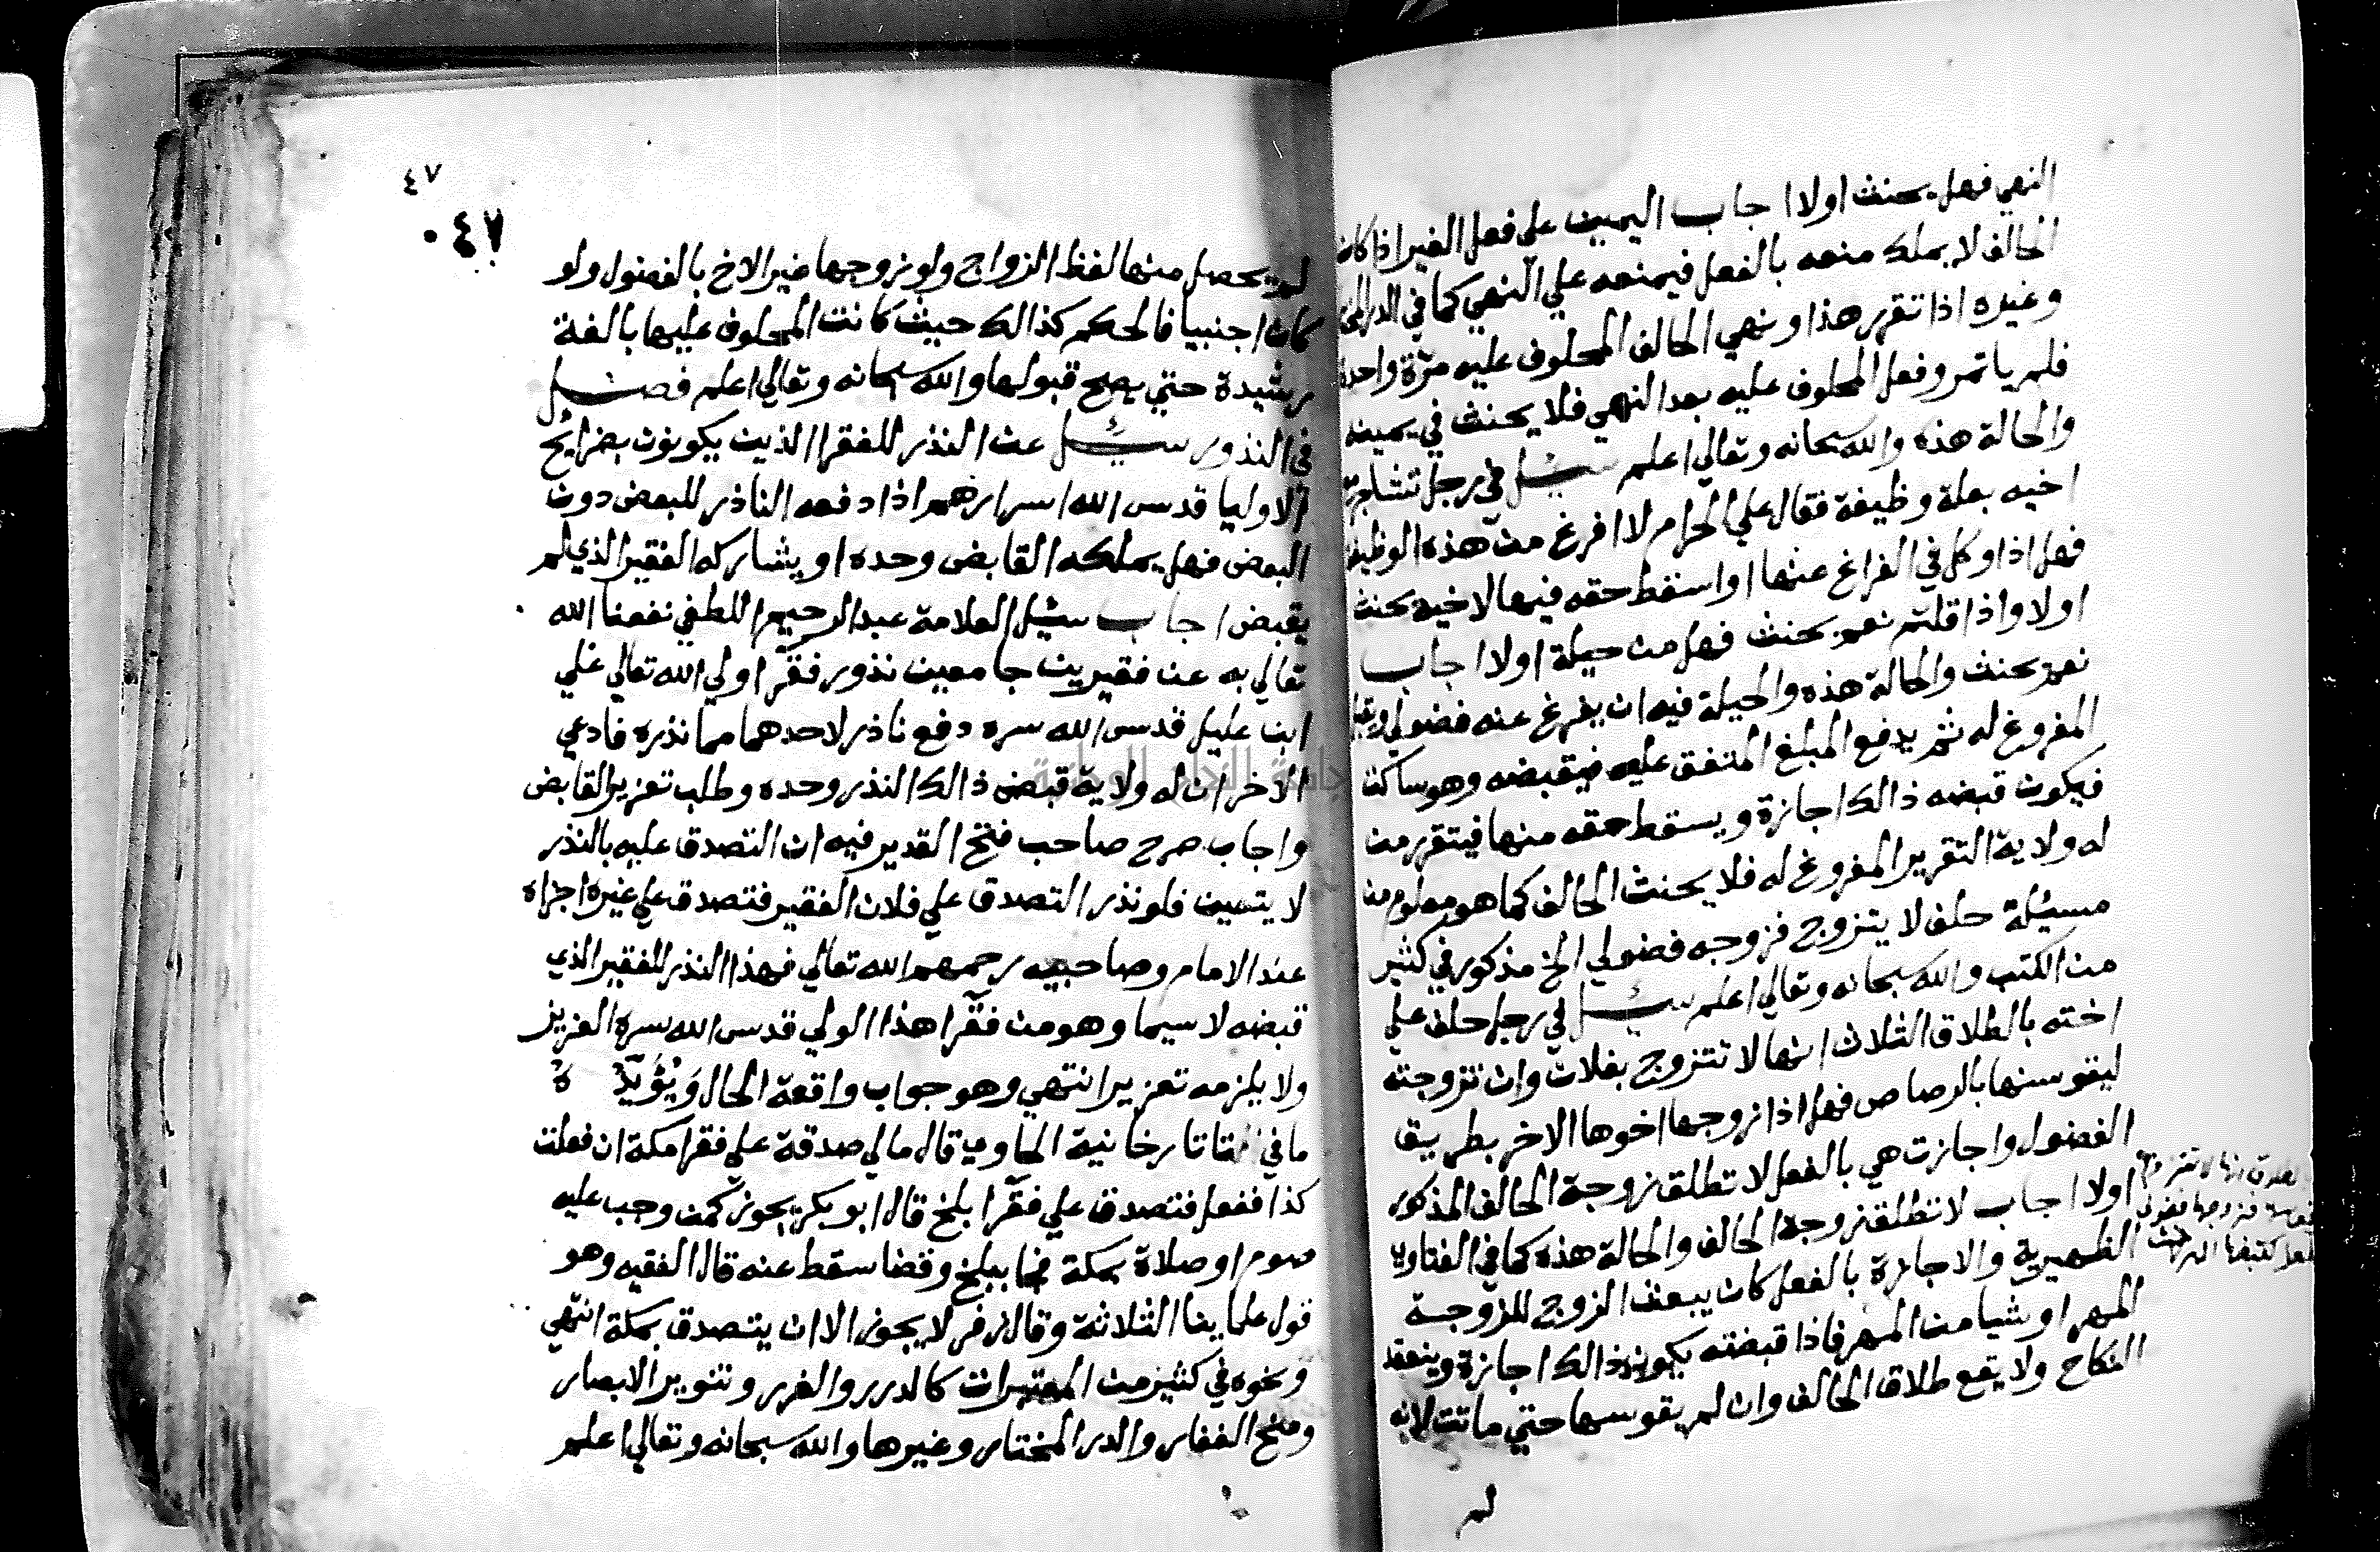 النهي فهل يحنث اولا اجاب اليمين علي فعل الغير اذا كان
الحالف لا يملك منعه بالفعل فيمنعه علي النهي كما في الدر المختار
وغيره اذا تقرر هذا ونهي الحالف المحلوف عليه مرة واحدة
فلم ياتمر وفعل المحلوف عليه بعد النهي فلا يحنث في يمينه
والحالة هذه والله سبحانه وتعالي اعلم سئل في رجل تشاجر مع
اخيه بعلة وظيفة فقال علي الحرام لا افرغ من هذه الوظيفة
فهل اذا وكل في الفراغ عنها او اسقط حقه فيها لاخيه يحنث
اولا واذا قلتم نعم يحنث فهل من حيلة اولا اجاب
نعم يحنث والحالة هذه والحيلة فيه ان يفرغ عنه فضولي
المفروغ له ثم يدفع المبلغ المتفق عليه فيقبضه وهو ساكت
فيكون قبضه ذالك اجازة ويسقط حقه منها فيتقرر من
له ولاية التقرير المفروغ له فلا يحنث الحالف كما هو معلوم من
مسئلة حلف لا يتزوج فزوجه فضولي الخ مذكور في كثير
من الكتب والله سبحانه وتعالي اعلم سئل في رجل حلف علي
اخته بالطلاق الثلاث انها لا تتزوج بفلان وان تزوجته
ليقوسنها بالرصاص فهل اذا زوجها اخوها الاخر بطريق
الفضول واجازت هي بالفعل لا تطلق زوجة الحالف المذكور
اولا اجاب لا تطلق زوجة الحالف والحالة هذه كما في الفتاوي
الظهيرية والاجازة بالفعل كان يبعث الزوج للزوجة
المهر او شيا من المهر فاذا قبضته يكون ذالك اجازة وينعقد
النكاح ولا يقع طلاق الحالف وان لم يقوسها حتي ماتت لانه
لم
٤٧
٠٤٧
لم يحصل منها لفظ الزواج ولو زوجها غير الاخ بالفضول ولو
كان اجنبيا فالحكم كذالك حيث كانت المحلوف عليها بالغة
رشيدة حتي يصح قبولها والله سبحانه وتعالي اعلم فصل
في النذور سئل عن النذر للفقرا الذين يكونون بضرايح
الاوليا قدس الله اسرارهم اذا دفعه الناذر للبعض دون
البعض فهل يملكه القابض وحده او يشاركه الفقير الذي لم
يقبض اجاب سئل العلامة عبد الرحيم اللطفي نفعنا الله
تعالي به عن فقيرين جامعين نذور فقرا ولي الله تعالي علي
ابن عليل قدس الله سره دفع ناذر لاحدهما مما نذره فادعي
الاخر ان له ولاية قبض ذالك النذر وحده وطلب تعزير القابض
واجاب صرح صاحب فتح القدير فيه ان التصدق عليه بالنذر
لا يتعين فلو نذر التصدق علي فلان الفقير فتصدق علي غيره اجزاه
عند الامام وصاحبيه رحمهم الله تعالي فهذا النذر للفقير الذي
قبضه لا سيما وهو من فقرا هذا الولي قدس الله سره العزيز
ولا يلزمه تعزير انتهي وهو جواب واقعة الحال وَيُؤَيِّدُهُ
ما في التاتارخانية الحاوي قال مالي صدقة علي فقرا مكة ان فعلت
كذا ففعل فتصدق علي فقرا بلخ قال ابو بكر يجوز كمن وجب عليه
صوم او صلاة بمكة ببلخ وقضا سقط عنه قال الفقيه وهو
قول علماينا الثلاثة وقال زفر لا يجوز الا ان يتصدق بمكة انتهي
ونحوه في كثير من المعتبرات كالدرر والغرر وتنوير الابصار
ومنح الغفار والدر المختار وغيرها والله سبحانه وتعالي اعلم